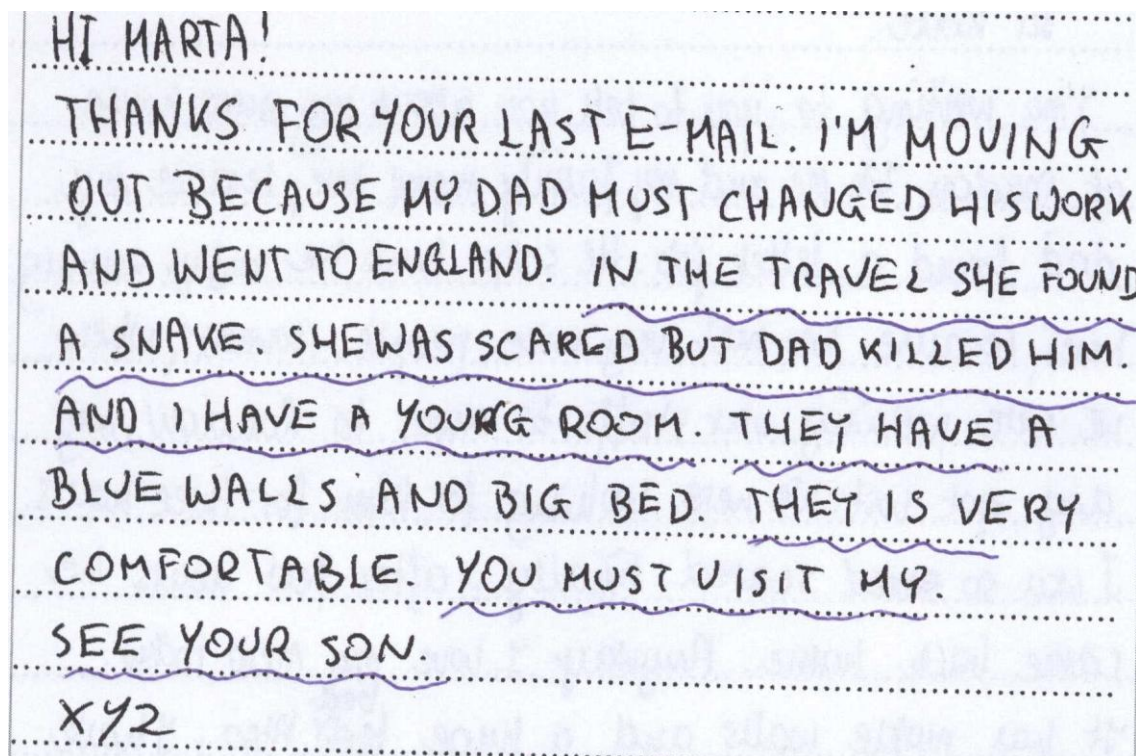 HI MARTA!
THANKS FOR YOUR LAST E-MAIL. I'M MOVING
OUT BECAUSE MY DAD MUST CHANGED HIS WORK
AND WENT TO ENGLAND. IN THE TRAVEL SHE FOUND
A SNAKE. SHE WAS SCARED BUT DAD KILLED HIM
AND I HAVE A YOURG ROOM. THEY HAVE A
BLUE WALLS AND BIG BED. THEY IS VERY
COMFORTABLE. YOU MUST VISIT MY.
SEE YOUR SON.
XYZ